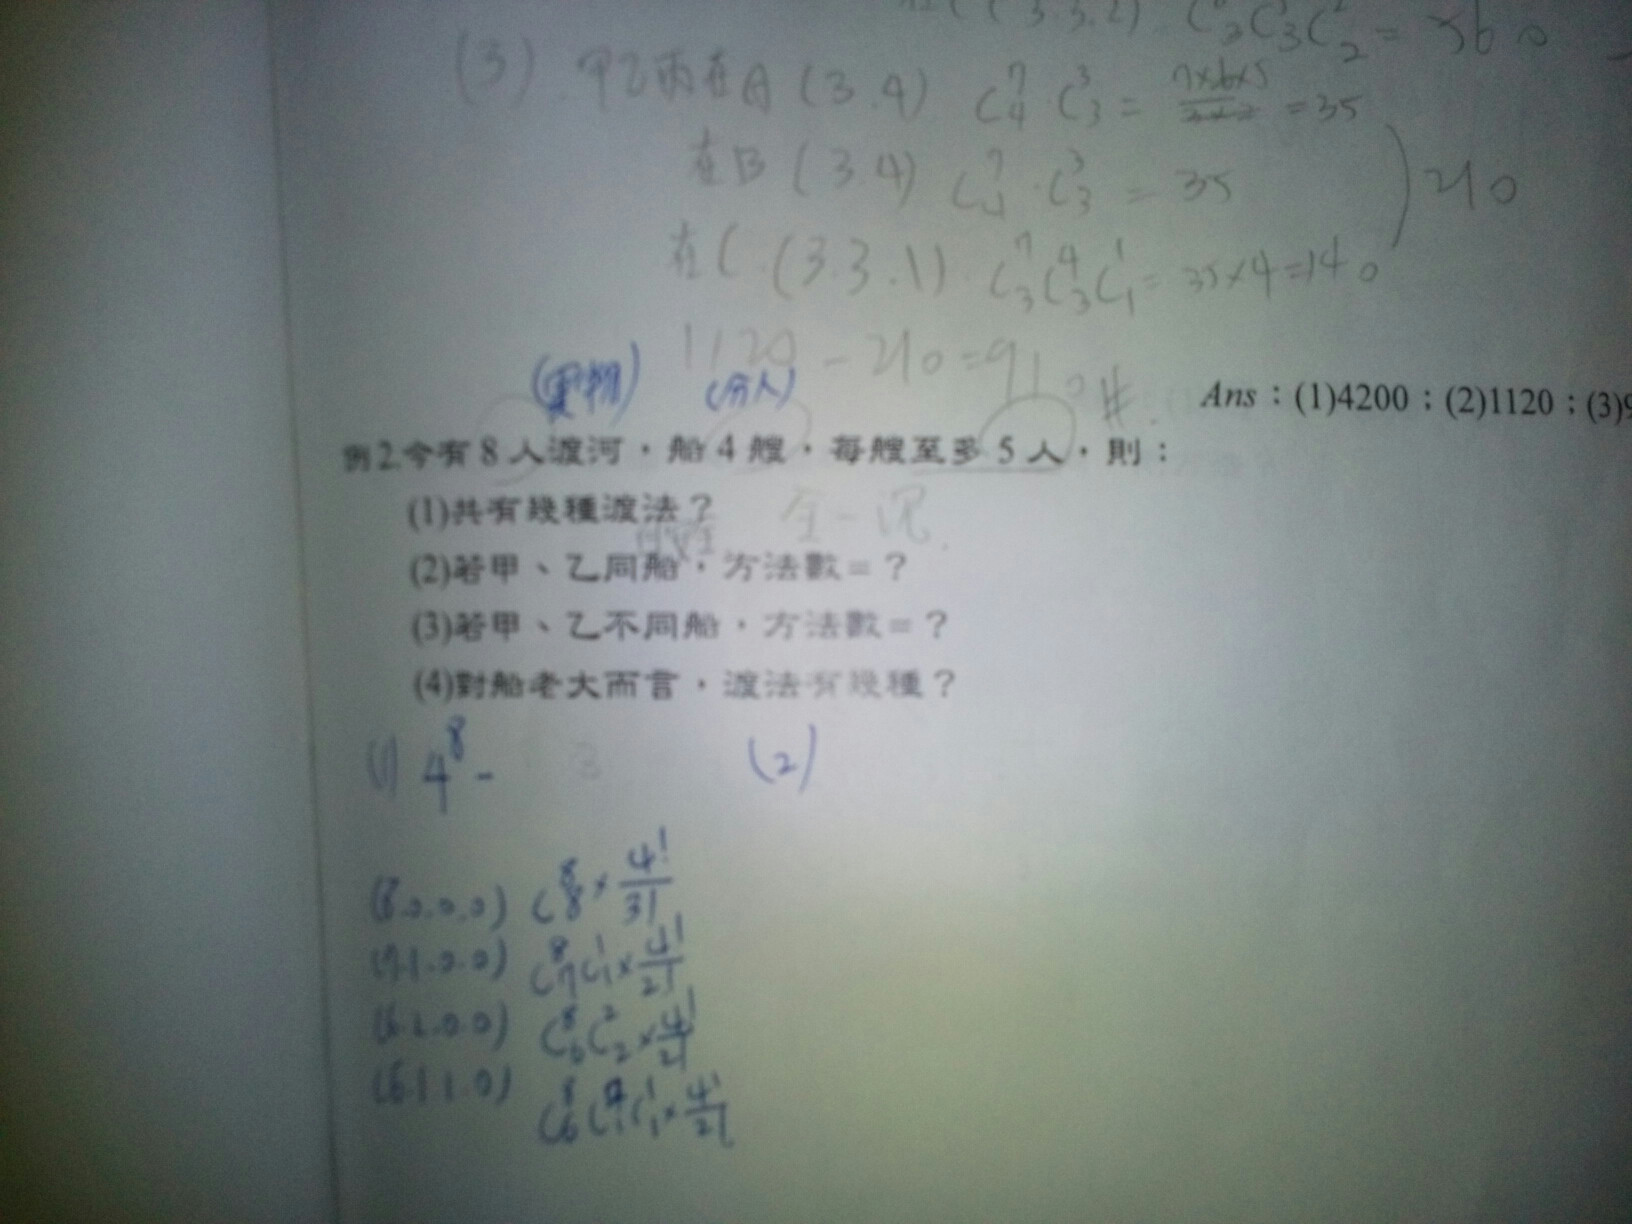 (3.3.2) C₃C₂² = 560
(3). 甲乙兩在A (3.4) C⁷₄ C³₃ = 7×6×5 = 35
在B (3.4) C⁷₄ · C³₃ = 35
) 210
在C (3.3.1) C⁷₃C⁴₃C¹₁ = 35×4=140
1120 - 210 = 910 #.
(異物) (分人)
Ans：(1)4200；(2)1120；(3)9
例2.今有8人渡河，船4艘，每艘至多5人，則：
(1)共有幾種渡法？ 全-沉
(2)若甲、乙同船，方法數=？
(3)若甲、乙不同船，方法數=？
(4)對船老大而言，渡法有幾種？
(1) 4⁸ - 3 (2)
(8.0.0.0) C⁸₈ × 4!/3!
(7.1.0.0) C⁸₇C¹₁ × 4!/2!
(6.2.0.0) C⁸₆C²₂ × 4!/2!
(6.1.1.0) C⁸₆C²₁C¹₁ × 4!/2!